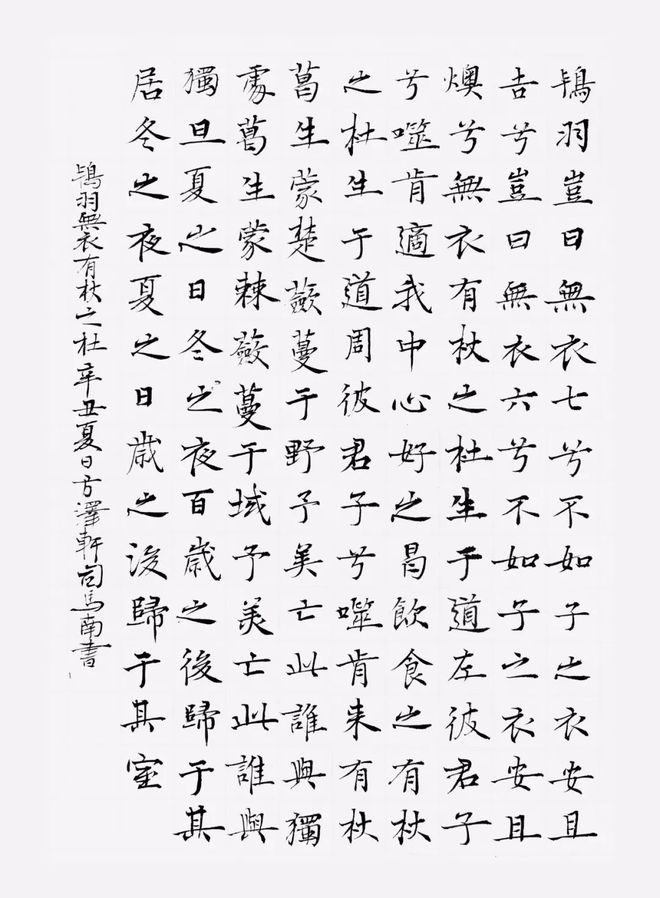 鴇羽豈曰無衣七兮不如子之衣安且
吉兮豈曰無衣六兮不如子之衣安且
燠兮無衣有杕之杜生于道左彼君子
兮噬肯適我中心好之曷飲食之有杕
之杜生于道周彼君子兮噬肯来有杕
葛生蒙楚蘞蔓于野予美亡此誰與獨
處葛生蒙棘蘞蔓于域予美亡此誰與
獨旦夏之日冬之夜百歲之後歸于其
居冬之夜夏之日歲之後歸于其室
鴇羽無衣有杕之杜辛丑夏日方澤軒司馬南書